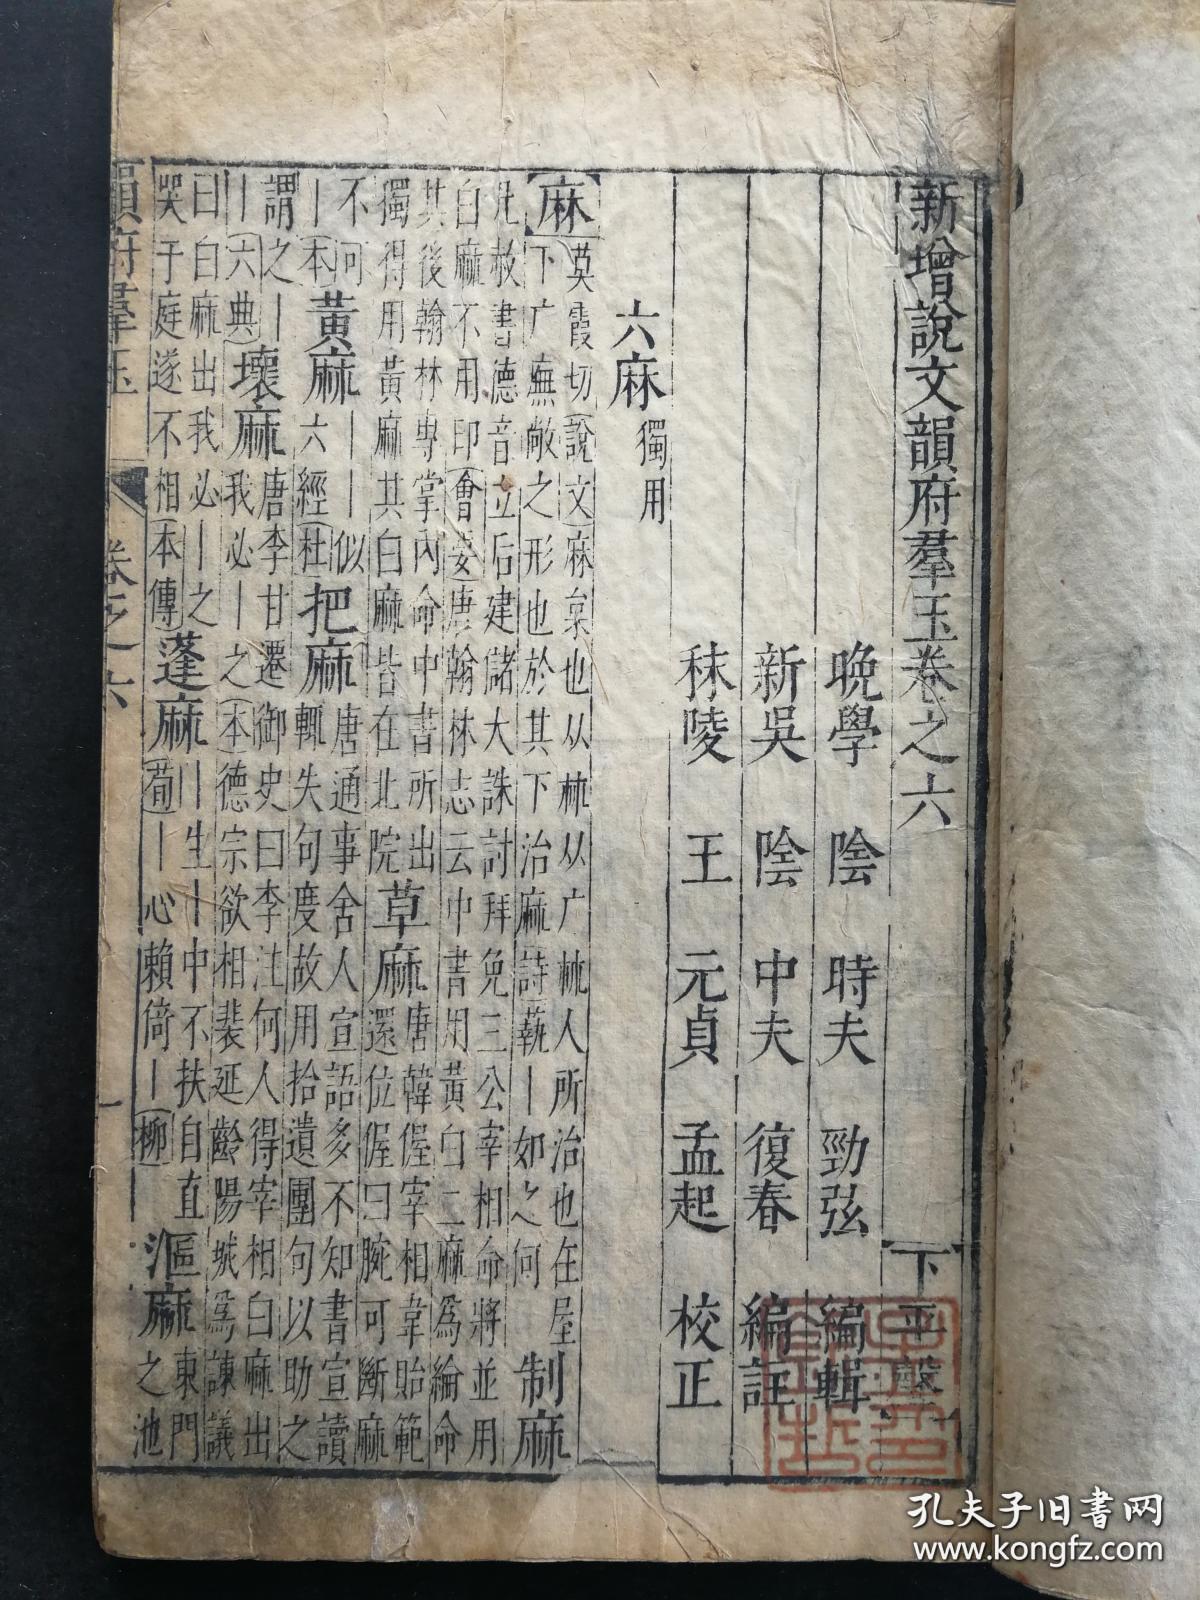 新增說文韻府羣玉卷之六 下平聲
晚學 陰 時夫 勁弦 編輯
新吳 陰 中夫 復春 編註
秣陵 王 元貞 孟起 校正
六麻 獨用
麻 莫霞切說文麻枲也从𣏟从广𣏟人所治也在屋下广廡敞之形也於其下治麻詩蓺丨如之何 制麻
凡赦書德音立后建儲大誅討拜免三公宰相命將並用白麻不用印會要唐翰林志云中書用黃白二麻爲綸命
其後翰林專掌內命中書所出獨得用黃麻其白麻皆在北院 草麻 唐韓偓宰相韋貽範還位偓曰腕可斷麻
不可丨本 黃麻 丨丨似六經杜 把麻 唐通事舍人宣語多不知書宣讀輒失句度故用拾遺團句以助之
謂之丨丨六典 壞麻 唐李甘遷御史曰李注何人得宰相白麻出我必丨之本德宗欲相裴延齡陽城爲諫議
曰白麻出我必丨之哭于庭遂不相本傳 蓬麻 丨生丨中不扶自直荀丨心賴倚丨柳 漚麻 東門之池
韻府羣玉 卷之六 一
孔夫子旧书网
www.kongfz.com